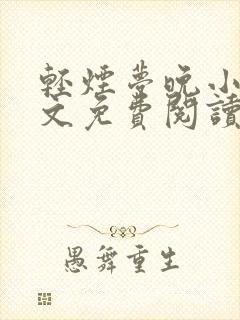 輕煙夢晚小
文免費閱讀
愚舞重生